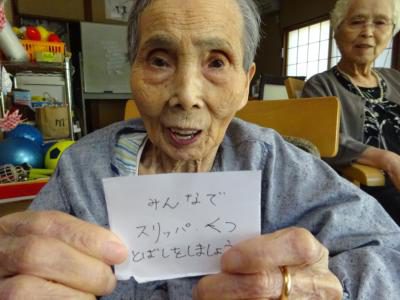 みんなで
スリッパ・くつ
とばしをしましょう